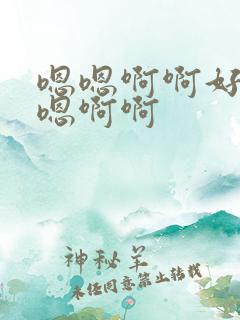 嗯嗯啊啊好
嗯啊啊
神秘羊
未经同意禁止转载